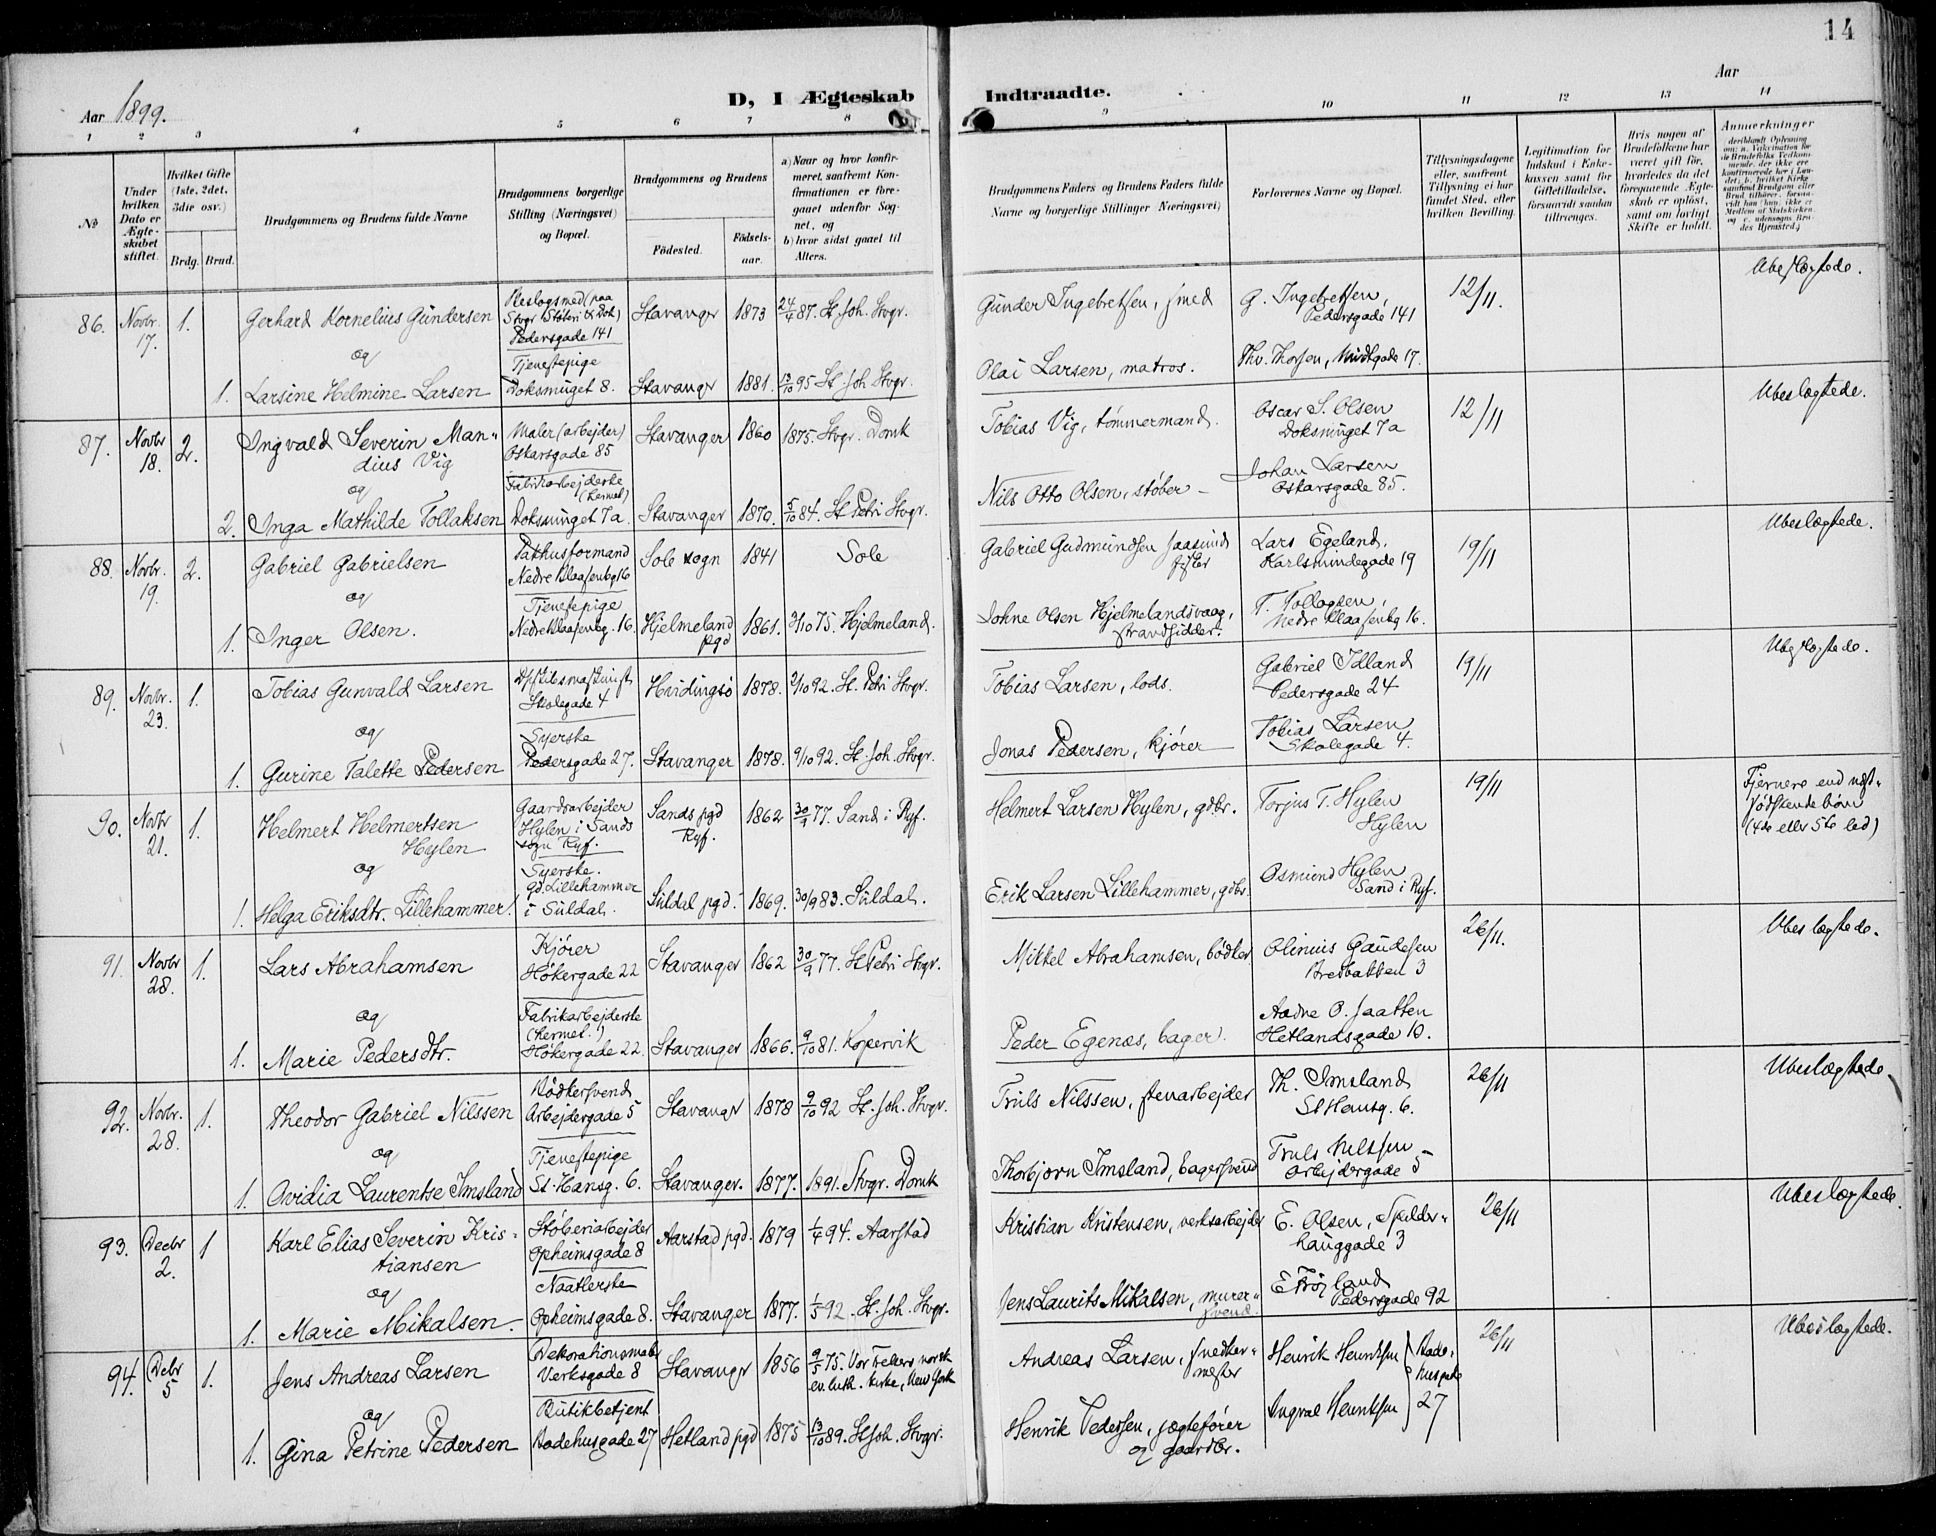 14
D, I Ægteskab Indtraadte.
Aar 1899. Aar
1 2 3 4 5 6 7 8 9 10 11 12 13 14
№
Under hvilken Dato er Ægteskabet stiftet.
Hvilket Gifte (1ste, 2det, 3die osv.)
Brdg. Brud.
Brudgommens og Brudens fulde Navne
Brudgommens borgerlige Stilling (Næringsvei) og Bopæl.
Brudgommens og Brudens
Födested. Födsels-aar.
a) Naar og hvor konfirmeret, saafremt Konfirmationen er foregaaet udenfor Sognet, og
b) hvor sidst gaael til Alters.
Brudgommens Faders og Brudens Faders fulde Navne og borgerlige Stillinger (Næringsvei)
Forlovernes Navne og Bopæl.
Tillysningsdagene eller, saafremt Tillysning ei har fundet Sted, efter hvilken Bevilling.
Legitimation for Indskud i Enkekassen samt for Giftetilladelse, forsaavidt saadan tiltrænges.
Hvis nogen af Brudefolkene har været gift för, hvorledes da det foregaaende Ægteskab er oplöst, samt om lovligt Skifte er holdt.
Anmerkninger
86. Novbr. 17. 1. Gerhard Kornelius Gundersen Pedersgade 141 Stavanger 1873 24/4 87. St. Joh. Stvgr. Gunder Ingebretsen, smed G. Ingebretsen, Pedersgade 141 12/11. Ubeslægtede.
og
1. Larsine Helmine Larsen Tjenestepige Doksmuget 8. Stavanger 1881. 13/10 95 St. Joh Stvgr. Olai Larsen, matros. Thv. Thorsen, Midtgade 17.
87. Novbr 18. 2. Ingvald Severin Man-
dius Vig Maler (arbejder) Oskarsgade 85 Stavanger 1860 1875. Stvgr. Domk Tobias Vig, tømmermand. Oscar S. Olsen Doksmuget 7a 12/11 Ubeslægtede.
og
2. Inga Mathilde Tollaksen Fabrikarbejderske (hermet.) Doksmuget 7a. Stavanger 1870. 5/10 84. St Petri Stvgr. Nils Otto Olsen, støber Johan Larsen Oskarsgade 85.
88. Novbr. 19. 2. Gabriel Gabrielsen Pakhusformand Nedre Blaasenbg 16 Sole sogn 1841 Sole Gabriel Gudmundsen Lars Egeland, Karlsmindegade 19 19/11 Ubeslægtede.
og
1. Inger Olsen. Tjenestepige Nedre Blaasenbg. 16. Hjelmeland pgd 1861. 3/10 75. Hjelmeland. Johne Olsen Hjelmelandsvaag, strandsidder. T. Tollagsen, Nedre Blaasenbg 16.
89. Novbr. 23. 1. Tobias Gunvald Larsen Skolegade 4 Hvidingsø 1878. 2/10 92. St. Petri Stvgr. Tobias Larsen, lods. Gabriel Idland Pedersgade 24 19/11 Ubeslægtede.
og
1. Gurine Talette Pedersen Syerske Pedersgade 27. Stavanger 1878. 9/10 92. St. Joh. Stvgr. Jonas Pedersen, kjører Tobias Larsen Skolegade 4.
90. Novbr 21. 1. Helmert Helmertsen
Hylen Gaardsarbejder Hylen i Sands sogn Ryf. Sands pgd Ryf. 1862 30/9 77. Sand i Ryf. Helmert Larsen Hylen, gdbr. Torjus T. Hylen Hylen 19/11 Fjernere end næst-
södskendebörn
(4de eller 5te led)
og
1. Helga Eriksdtr. Lillehammer. Syerske. Gd. Lillehammer i Suldal. Suldal pgd. 1869. 30/9 83. Suldal. Erik Larsen Lillehammer, gdbr. Osmund Hylen Sand i Ryf.
91. Novbr 28. 1. Lars Abrahamsen Kjører Høkergade 22 Stavanger 1862 30/9 77. St Petri Stvgr. Mikkel Abrahamsen, bødker Olinius Gaudesen Bredbakken 3 26/11. Ubeslægtede.
og
1. Marie Pedersdtr. Fabrikarbejderske (hermet.) Høkergade 22. Stavanger 1866. 9/10 81. Kopervik Peder Egenæs, bager. Aadne O. Jaatten Hetlandsgade 10.
92. Novbr. 28. 1. Theodor Gabriel Nilssen Bødkersvend Arbejdergade 5 Stavanger 1878 9/10 92 St. Joh. Stvgr. Truls Nilssen, stenarbejder Th. Imsland St Hansg. 6. 26/11 Ubeslægtede
og
1. Ovidia Laurentse Imsland Tjenestepige St. Hansg. 6. Stavanger. 1877. 1891. Stvgr. Domk Thorbjørn Imsland, bagersvend Truls Nilssen Arbejdergade 5
93. Decbr 2. 1 Karl Elias Severin Kris-
tiansen Støberiarbejder Opheimsgade 8 Aarstad pgd. 1879 1/4 94. Aarstad Kristian Kristensen, verksarbejder E. Olsen, Spilder-
hauggade 3 26/11 Ubeslægtede
og
1. Marie Mikalsen. Naatlerske Opheimsgade 8. Stavanger 1877. 1/5 92. St. Joh. Stvgr. Jens Laurits Mikalsen, murer-
svend. Pedersgade 92
94. Decbr 5 1. Jens Andreas Larsen Dekorationsmaler Verksgade 8 Stavanger 1856 9/5 75. Vor frelsers norsk ev. luth. kirke, New York Andreas Larsen, snedker-
mester Henrik Henriksen 26/11 Ubeslægtede.
og
1. Gina Petrine Pedersen Butikbetjent Raadehusgade 27 Hetland pgd 1875 13/10 89. St Joh. Stvgr. Henrik Pedersen, jægtefører og gaardbr. Ingval Henriksen 27